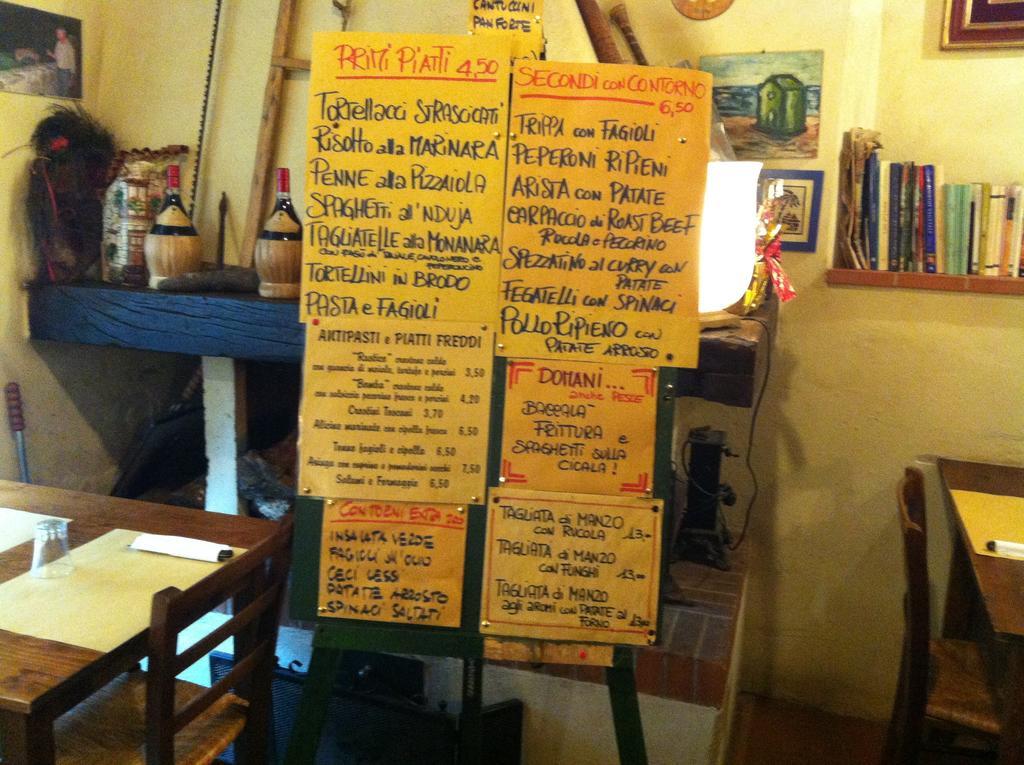 CANTUCCINI
PANFORTE
PRIMI PIATTI 4,50
TORTELLACCI STRASCICATI
RISOTTO alla MARINARA
PENNE alla PIZZAIOLA
SPAGHETTI all'NDUJA
TAGLIATELLE alla MONANARA
TORTELLINI IN BRODO
PASTA e FAGIOLI
SECONDI CON CONTORNO
6,50
TRIPPA con FAGIOLI
PEPERONI RIPIENI
ARISTA con PATATE
CARPACCIO di ROAST BEEF
RUCOLA e PECORINO
SPEZZATINO al CURRY con
PATATE
FEGATELLI con SPINACI
POLLO RIPIENO con
PATATE ARROSTO
ANTIPASTI e PIATTI FREDDI
"Rustico" crostone caldo
con guancia di maiale, tartufo e porcini 3,50
"Bomba" crostone caldo
con salsiccia pecorino fresco e porcini 4,20
Crostini Toscani 3,70
Alicine marinate con cipolla fresca 6,50
Tonno fagioli e cipolla 6,50
Asiago con caprino e pomodorini secchi 7,50
Salumi e Formaggio 6,50
DOMANI...
anche PESCE
BACCALA'
FRITTURA e
SPAGHETTI SULLA
CICALA!
CONTORNI EXTRA
INSALATA VERDE
FAGIOLI ALL'OLIO
CECI LESSI
PATATE ARROSTO
SPINACI SALTATI
TAGLIATA di MANZO
CON RUCOLA 13,-
TAGLIATA di MANZO
CON FUNGHI 13,-
TAGLIATA di MANZO
agli aromi con PATATE al
FORNO 13,00